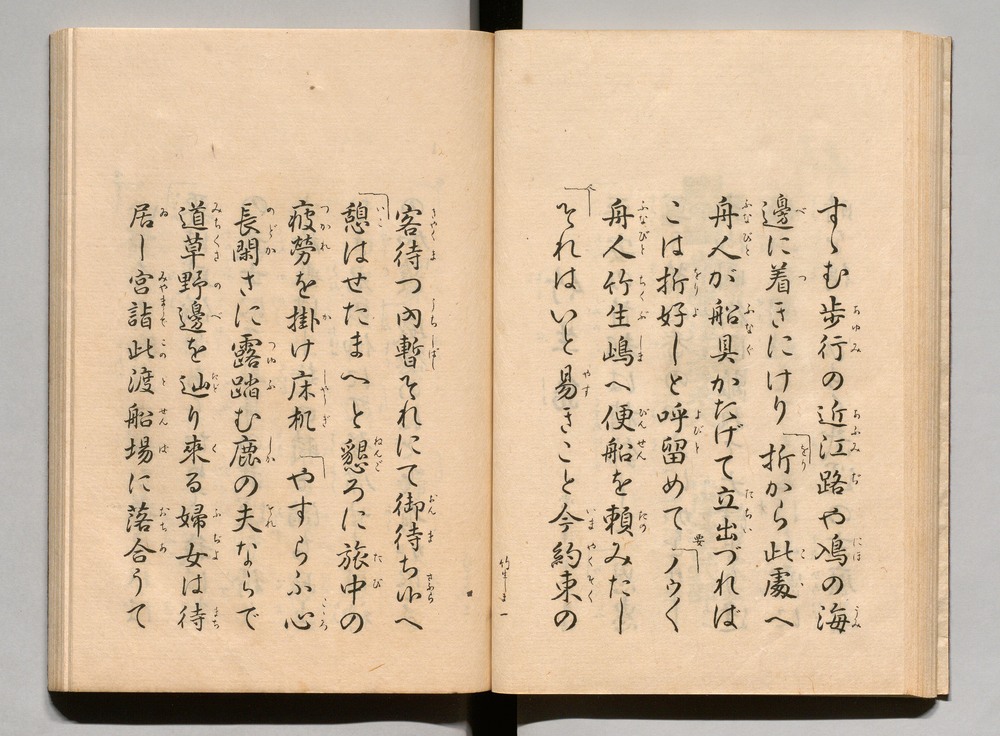 すゝむ歩行の近江路や鳰の海
邊に着きにけり折から此處へ
舟人が船具かたげて立出づれば
こは折好しと呼留めてノゥく
舟人竹生嶋へ便船を頼みたし
それはいと易きこと今約束の
竹生しま 一
客待つ內暫それにて御待ち小へ
憩はせたまへと懇ろに旅中の
疲勞を掛け床机やすらふ心
長閑さに露踏む鹿の夫ならで
道草野邊を辿り來る婦女は待
居し宮詣此渡船場に落合うて